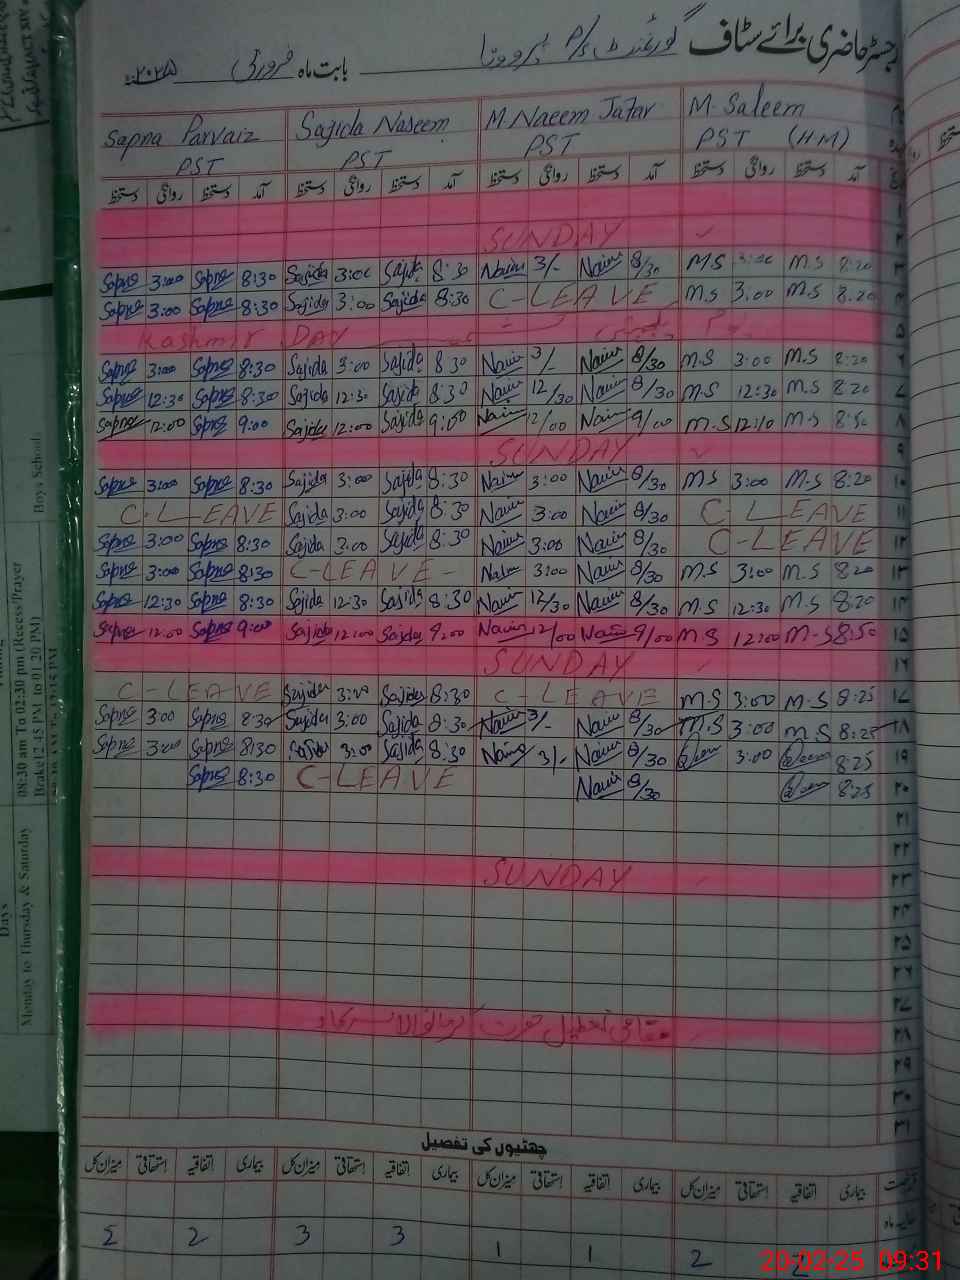 رجسٹر حاضری برائے سٹاف گورنمنٹ P/S
بابت ماہ فروری ۲۰۲۵ء
Sapna Parvaiz Sajida Naseem M Naeem Jafar M. Saleem
PST PST PST PST (HM)
دستخط روانگی دستخط آمد دستخط روانگی دستخط آمد دستخط روانگی دستخط آمد دستخط روانگی دستخط آمد
۱
SUNDAY ۲
Sapna 3:00 Sapna 8:30 Sajida 3:00 Sajida 8:30 Naeem 3/- Naeem 8/30 M.S 3:00 M.S 8:20 ۳
Sapna 3:00 Sapna 8:30 Sajida 3:00 Sajida 8:30 C-LEAVE M.S 3:00 M.S 8.20 ۴
Kashmir DAY ۵
Sapna 3:00 Sapna 8:30 Sajida 3:00 Sajida 8 30 Naeem 3/- Naeem 8/30 M.S 3:00 M.S 8:20 ۶
Sapna 12:30 Sapna 8:30 Sajida 12:30 Sajida 8:30 Naeem 12/30 Naeem 8/30 M.S 12:30 M.S 8:20 ۷
Sapna 12:00 Sapna 9:00 Sajida 12:00 Sajida 9:00 Naeem 12/00 Naeem 9/00 M.S 12:10 M.S 8:50 ۸
SUNDAY ۹
Sapna 3:00 Sapna 8:30 Sajida 3:00 Sajida 8:30 Naeem 3:00 Naeem 8/30 M.S 3:00 M.S 8:20 ۱۰
C-LEAVE Sajida 3:00 Sajida 8:30 Naeem 3:00 Naeem 8/30 C-LEAVE ۱۱
Sapna 3:00 Sapna 8:30 Sajida 3:00 Sajida 8:30 Naeem 3:00 Naeem 8/30 C-LEAVE ۱۲
Sapna 3:00 Sapna 8:30 C-LEAVE- Naeem 3:00 Naeem 8/30 M.S 3:00 M.S 8:20 ۱۳
Sapna 12:30 Sapna 8:30 Sajida 12:30 Sajida 8:30 Naeem 12/30 Naeem 8/30 M.S 12:30 M.S 8:20 ۱۴
Sapna 12:00 Sapna 9:00 Sajida 12:00 Sajida 9:00 Naeem 12/00 Naeem 9/00 M.S 12:00 M.S 8:50 ۱۵
SUNDAY ۱۶
C-LEAVE Sajida 3:00 Sajida 8:30 C-LEAVE M.S 3:00 M.S 8:25 ۱۷
Sapna 3:00 Sapna 8:30 Sajida 3:00 Sajida 8:30 Naeem 3/- Naeem 8/30 M.S 3:00 M.S 8:25 ۱۸
Sapna 3:00 Sapna 8:30 Sajida 3:00 Sajida 8.30 Naeem 3/- Naeem 8/30 3:00 8:25 ۱۹
Sapna 8:30 C-LEAVE Naeem 8/30 8:25 ۲۰
۲۱
۲۲
SUNDAY ۲۳
۲۴
۲۵
۲۶
۲۷
مقامی تعطیل ۲۸
۲۹
۳۰
۳۱
چھٹیوں کی تفصیل
میزان کل استحقاقی اتفاقیہ بیماری میزان کل استحقاقی اتفاقیہ بیماری میزان کل استحقاقی اتفاقیہ بیماری میزان کل استحقاقی اتفاقیہ بیماری
2 2 3 3 1 1 2 2
Boys School.
08:30 am To 02:30 pm (Recess Prayer
Brake12:45 PM to 01.20 PM)
Days
Monday to Thursday & Saturday
20-02-25 09:31